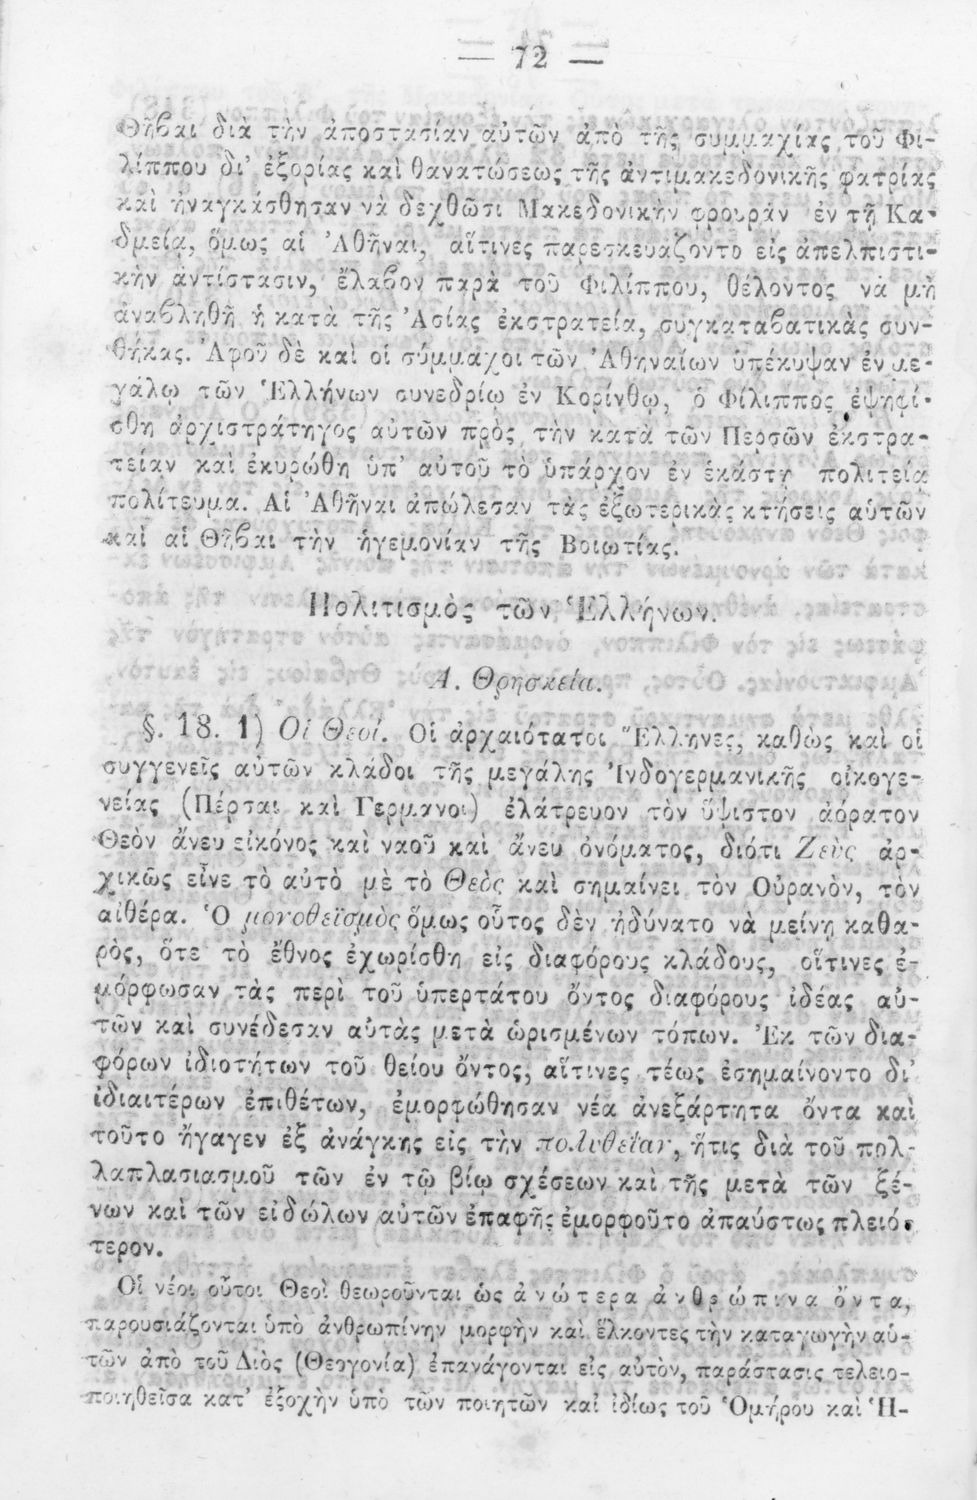 — 72 —
Θῆβαι διὰ τὴν ἀποστασίαν αὐτῶν ἀπὸ τῆς συμμαχίας τοῦ Φι-
λίππου δι' ἐξορίας καὶ θανατώσεως τῆς ἀντιμακεδονικῆς φατρίας
καὶ ἠναγκάσθησαν νὰ δεχθῶσι Μακεδονικὴν φρουρὰν ἐν τῇ Κα-
δμείᾳ, ὅμως αἱ Ἀθῆναι, αἵτινες παρεσκευάζοντο εἰς ἀπελπιστι-
κὴν ἀντίστασιν, ἔλαβον παρὰ τοῦ Φιλίππου, θέλοντος νὰ μὴ
ἀναβληθῇ ἡ κατὰ τῆς Ἀσίας ἐκστρατεία, συγκαταβατικὰς συν-
θήκας. Ἀφοῦ δὲ καὶ οἱ σύμμαχοι τῶν Ἀθηναίων ὑπέκυψαν ἐν με-
γάλῳ τῶν Ἑλλήνων συνεδρίῳ ἐν Κορίνθῳ, ὁ Φίλιππος ἐψηφί-
σθη ἀρχιστράτηγος αὐτῶν πρὸς τὴν κατὰ τῶν Περσῶν ἐκστρα-
τείαν καὶ ἐκυρώθη ὑπ' αὐτοῦ τὸ ὑπάρχον ἐν ἑκάστῃ πολιτείᾳ
πολίτευμα. Αἱ Ἀθῆναι ἀπώλεσαν τὰς ἐξωτερικὰς κτήσεις αὐτῶν
καὶ αἱ Θῆβαι τὴν ἡγεμονίαν τῆς Βοιωτίας.
Πολιτισμὸς τῶν Ἑλλήνων.
Α. Θρησκεία.
§. 18. 1) Οἱ Θεοί. Οἱ ἀρχαιότατοι Ἕλληνες, καθὼς καὶ οἱ
συγγενεῖς αὐτῶν κλάδοι τῆς μεγάλης Ἰνδογερμανικῆς οἰκογε-
νείας (Πέρσαι καὶ Γερμανοὶ) ἐλάτρευον τὸν ὕψιστον ἀόρατον
Θεὸν ἄνευ εἰκόνος καὶ ναοῦ καὶ ἄνευ ὀνόματος, διότι Ζεὺς ἀρ-
χικῶς εἶνε τὸ αὐτὸ μὲ τὸ Θεὸς καὶ σημαίνει τὸν Οὐρανὸν, τὸν
αἰθέρα. Ὁ μονοθεϊσμὸς ὅμως οὗτος δὲν ἠδύνατο νὰ μείνῃ καθα-
ρὸς, ὅτε τὸ ἔθνος ἐχωρίσθη εἰς διαφόρους κλάδους, οἵτινες ἐ-
μόρφωσαν τὰς περὶ τοῦ ὑπερτάτου ὄντος διαφόρους ἰδέας αὑ-
τῶν καὶ συνέδεσαν αὐτὰς μετὰ ὡρισμένων τόπων. Ἐκ τῶν δια-
φόρων ἰδιοτήτων τοῦ θείου ὄντος, αἵτινες τέως ἐσημαίνοντο δι'
ἰδιαιτέρων ἐπιθέτων, ἐμορφώθησαν νέα ἀνεξάρτητα ὄντα καὶ
τοῦτο ἤγαγεν ἐξ ἀνάγκης εἰς τὴν πολυθεΐαν, ἥτις διὰ τοῦ πολ-
λαπλασιασμοῦ τῶν ἐν τῷ βίῳ σχέσεων καὶ τῆς μετὰ τῶν ξέ-
νων καὶ τῶν εἰδώλων αὐτῶν ἐπαφῆς ἐμορφοῦτο ἀπαύστως πλειό-
τερον.
Οἱ νέοι οὗτοι Θεοὶ θεωροῦνται ὡς ἀνώτερα ἀνθρώπινα ὄντα,
παρουσιάζονται ὑπὸ ἀνθρωπίνην μορφὴν καὶ ἕλκοντες τὴν καταγωγὴν αὑ-
τῶν ἀπὸ τοῦ Διὸς (Θεογονία) ἐπανάγονται εἰς αὐτὸν, παράστασις τελειο-
ποιηθεῖσα κατ' ἐξοχὴν ὑπὸ τῶν ποιητῶν καὶ ἰδίως τοῦ Ὁμήρου καὶ Ἡ-